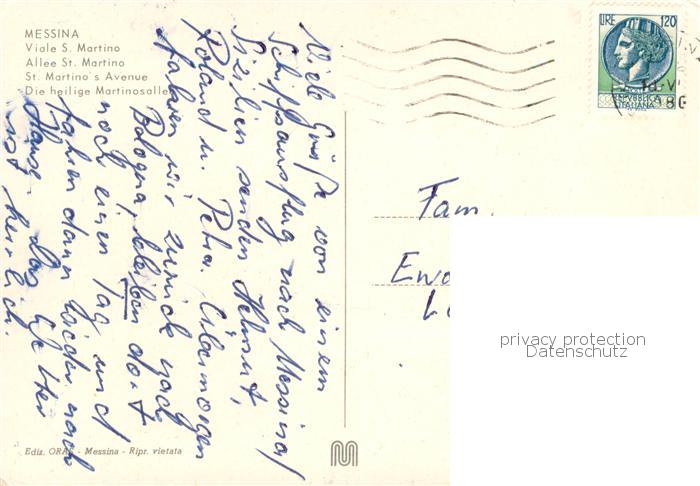 MESSINA
Viale S. Martino
Allee St. Martino
St. Martino's Avenue
Die heilige Martinosalle
Viele Grüße von einem
Schiffsausflug nach Messina/
Sizilien senden Helmut,
Roland u. Petra. Übermorgen
fahren wir zurück nach
Bologna, bleiben dort
noch einen Tag und
fahren dann wieder nach
Hause. Das Wetter
ist herrlich.
LIRE 120
REPVBBLICA
ITALIANA
Fam.
Ewa
privacy protection
Datenschutz
Ediz. ORA - Messina - Ripr. vietata